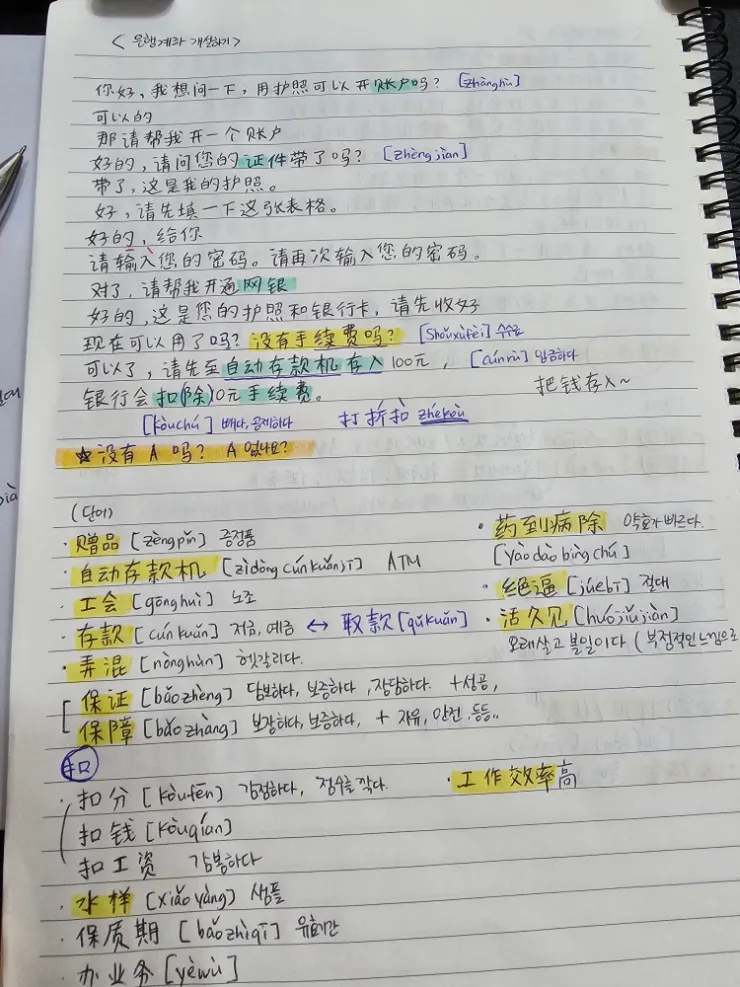 < 은행계좌 개설하기 >
你好，我想问一下，用护照可以开账户吗? [zhànghù]
可以的
那请帮我开一个账户
好的，请问您的证件带了吗? [zhèngjiàn]
带了，这是我的护照。
好，请先填一下这张表格。
好的，给你
请输入您的密码。请再次输入您的密码。
对了，请帮我开通网银
好的，这是您的护照和银行卡，请先收好
现在可以用了吗? 没有手续费吗? [Shǒuxùfèi] 수수료
可以了，请先至自动存款机存入100元， [cúnrù] 입금하다
银行会扣(除)10元手续费。 把钱存入~
[kòuchú] 빼다, 공제하다 打折扣 zhékòu
☆没有 A 吗? A 없나요?
(단어)
· 赠品 [zèngpǐn] 증정품
· 自动存款机 [zìdòng cúnkuǎnjī] ATM
· 工会 [gōnghuì] 노조
· 存款 [cúnkuǎn] 저금, 예금 ↔ 取款 [qǔkuǎn]
· 弄混 [nònghùn] 헷갈리다.
[ 保证 [bǎozhèng] 담보하다, 보증하다, 장담하다. +성공,
保障 [bǎozhàng] 보장하다, 보증하다, + 자유, 안전 등등..
扣
· 扣分 [kòufēn] 감점하다, 점수를 깍다.
扣钱 [kòuqián]
扣工资 감봉하다
· 水样 [xiǎoyàng] 샘플
· 保质期 [bǎozhìqī] 유효기간
· 办业务 [yèwù]
· 药到病除 약효가 빠르다.
[yào dào bìng chú]
· 绝逼 [juébī] 절대
· 活久见 [huójiǔjiàn]
오래살고 볼일이다 (부정적인 느낌으로
· 工作效率高